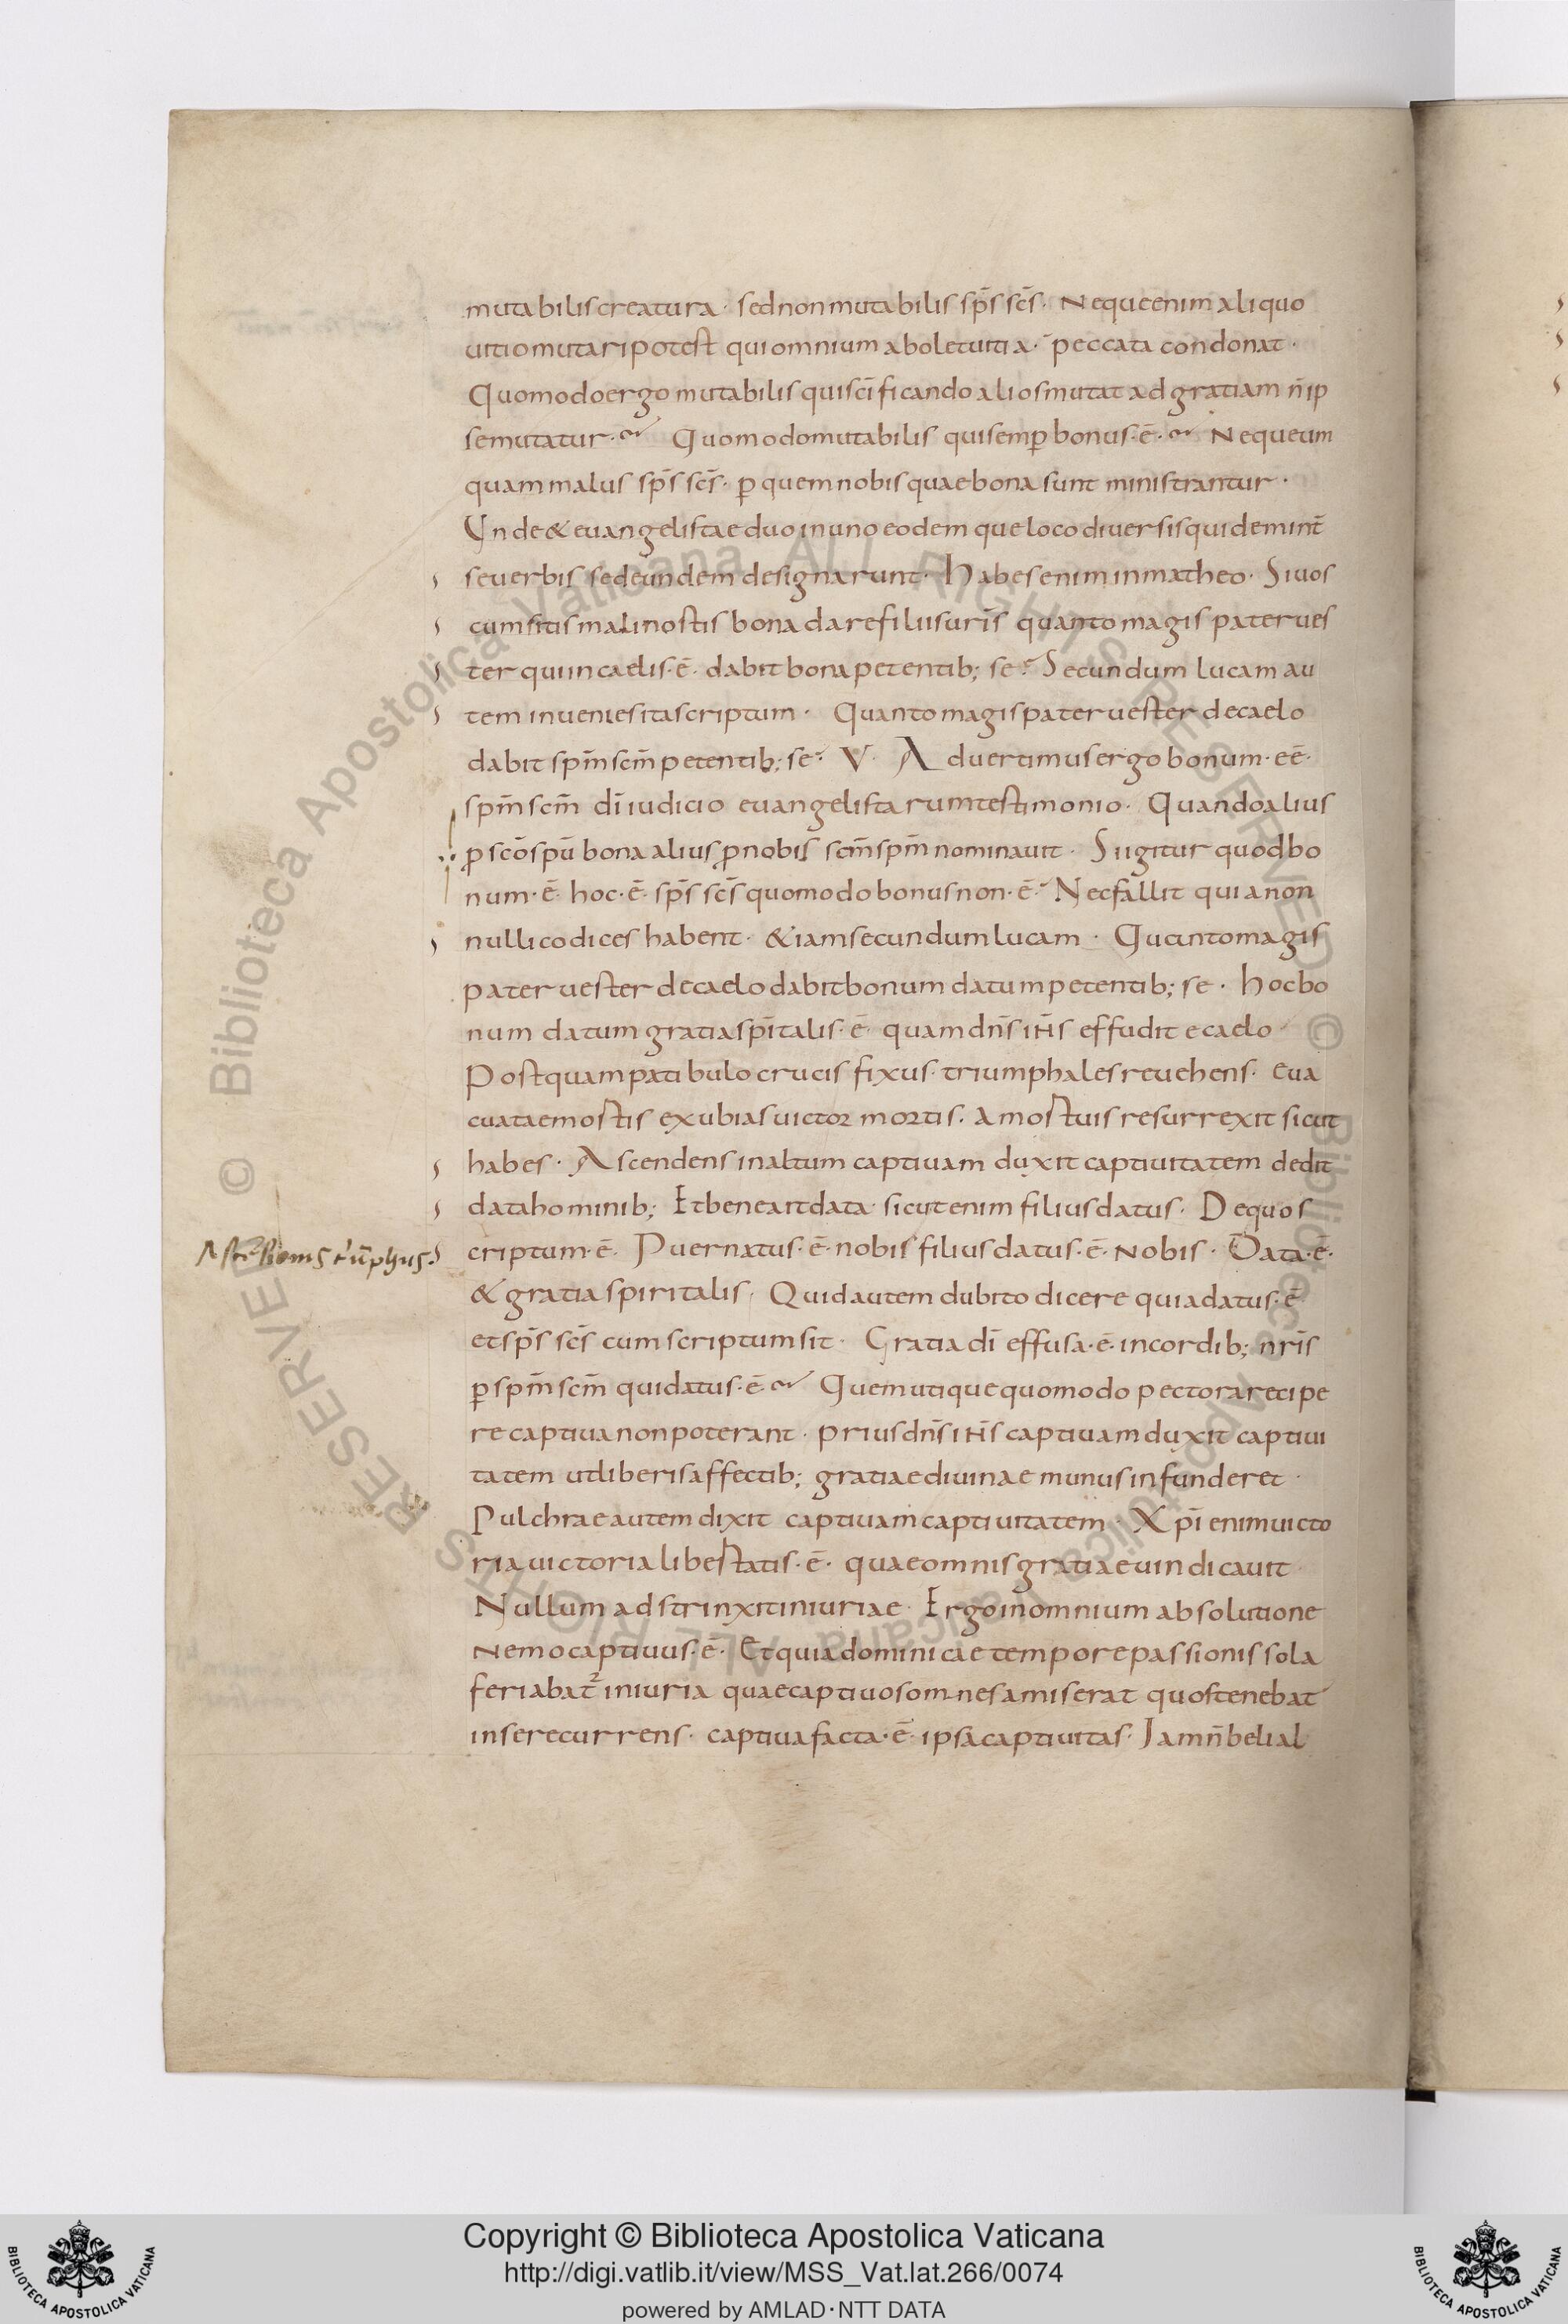 mutabilis creatura · sed non mutabilis sp̄s sc̄s · Neque enim aliquo
uitio mutari potest qui omnium abolet uitia · peccata condonat ·
Quomodo ergo mutabilis qui sc̄ificando alios mutat ad gratiam n̄ ip
se mutatur · Quomodo mutabilis qui semꝑ bonus · ē · Neque um
quam malus sp̄s sc̄s · ꝑ quem nobis quae bona sunt ministrantur ·
Unde & euangelistae duo in uno eodemque loco diuersis quidem int̄
se uerbis sed eundem designarunt · Habes enim in matheo · Si uos
cum sitis mali nostis bona dare filiis ur̄is quanto magis pater ues
ter qui in caelis · ē · dabit bona petentib; se · Secundum lucam au
tem inuenies ita scriptum · Quanto magis pater uester de caelo
dabit sp̄m sc̄m petentib; se · V · Aduertimus ergo bonum · eē ·
sp̄m sc̄m dī iudicio euangelistarum testimonio · Quando alius
ꝓ sc̄o sp̄u bona alius ꝓ nobis sc̄m sp̄m nominauit · Si igitur quod bo
num · ē · hoc · ē · sp̄s sc̄s quomodo bonus non · ē · Nec fallit quia non
nulli codices habent · &iam secundum lucam · Quanto magis
pater uester de caelo dabit bonum datum petentib; se · hoc bo
num datum gratia sp̄italis · ē · quam dn̄s ih̄s effudit e caelo
Postquam patibulo crucis fixus · triumphales reuehens · eua
cuatae mortis exubias uictor mortis · a mortuis resurrexit sicut
habes · Ascendens in altum captiuam duxit captiuitatem dedit
data hominib; Et bene ait data · sicut enim filius datus · De quo s
criptum · ē · Puer natus · ē · nobis filius datus · ē · Nobis · Data · ē ·
& gratia spiritalis · Quid autem dubito dicere quia datus · ē
et sp̄s sc̄s cum scriptum sit · Gratia dī effusa · ē · in cordib; nr̄is
ꝑ sp̄m sc̄m qui datus · ē · Quem utique quomodo pectora recipe
re captiua non poterant · prius dn̄s ih̄s captiuam duxit captiui
tatem ut liberis affectib; gratiae diuinae munus infunderet ·
Pulchrae autem dixit captiuam captiuitatem · Xp̄i enim uicto
ria uictoria libertatis · ē · quae omnis gratiae uindicauit
Nullum adstrinxit iniuriae · Ergo in omnium absolutione
Nemo captiuus · ē · Et quia dominicae tempore passionis sola
feriabat᷑ iniuria quae captiuos omnes amiserat quos tenebat
in se recurrens · captiua facta · ē · ipsa captiuitas · Iam n̄ belial
Copyright © Biblioteca Apostolica Vaticana
http://digi.vatlib.it/view/MSS_Vat.lat.266/0074
powered by AMLAD·NTT DATA
BIBLIOTECA APOSTOLICA VATICANA
BIBLIOTECA APOSTOLICA VATICANA
© Biblioteca Apostolica Vaticana ALL RIGHTS RESERVED
© Biblioteca Apostolica Vaticana ALL RIGHTS RESERVED